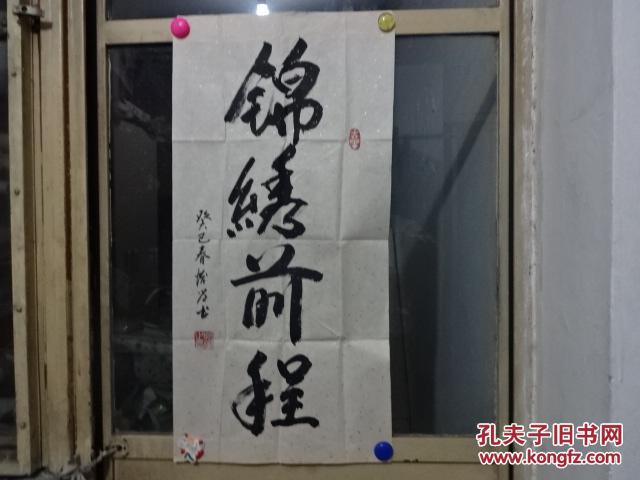 錦繡前程
癸巳春
书
孔夫子旧书网
www.kongfz.com